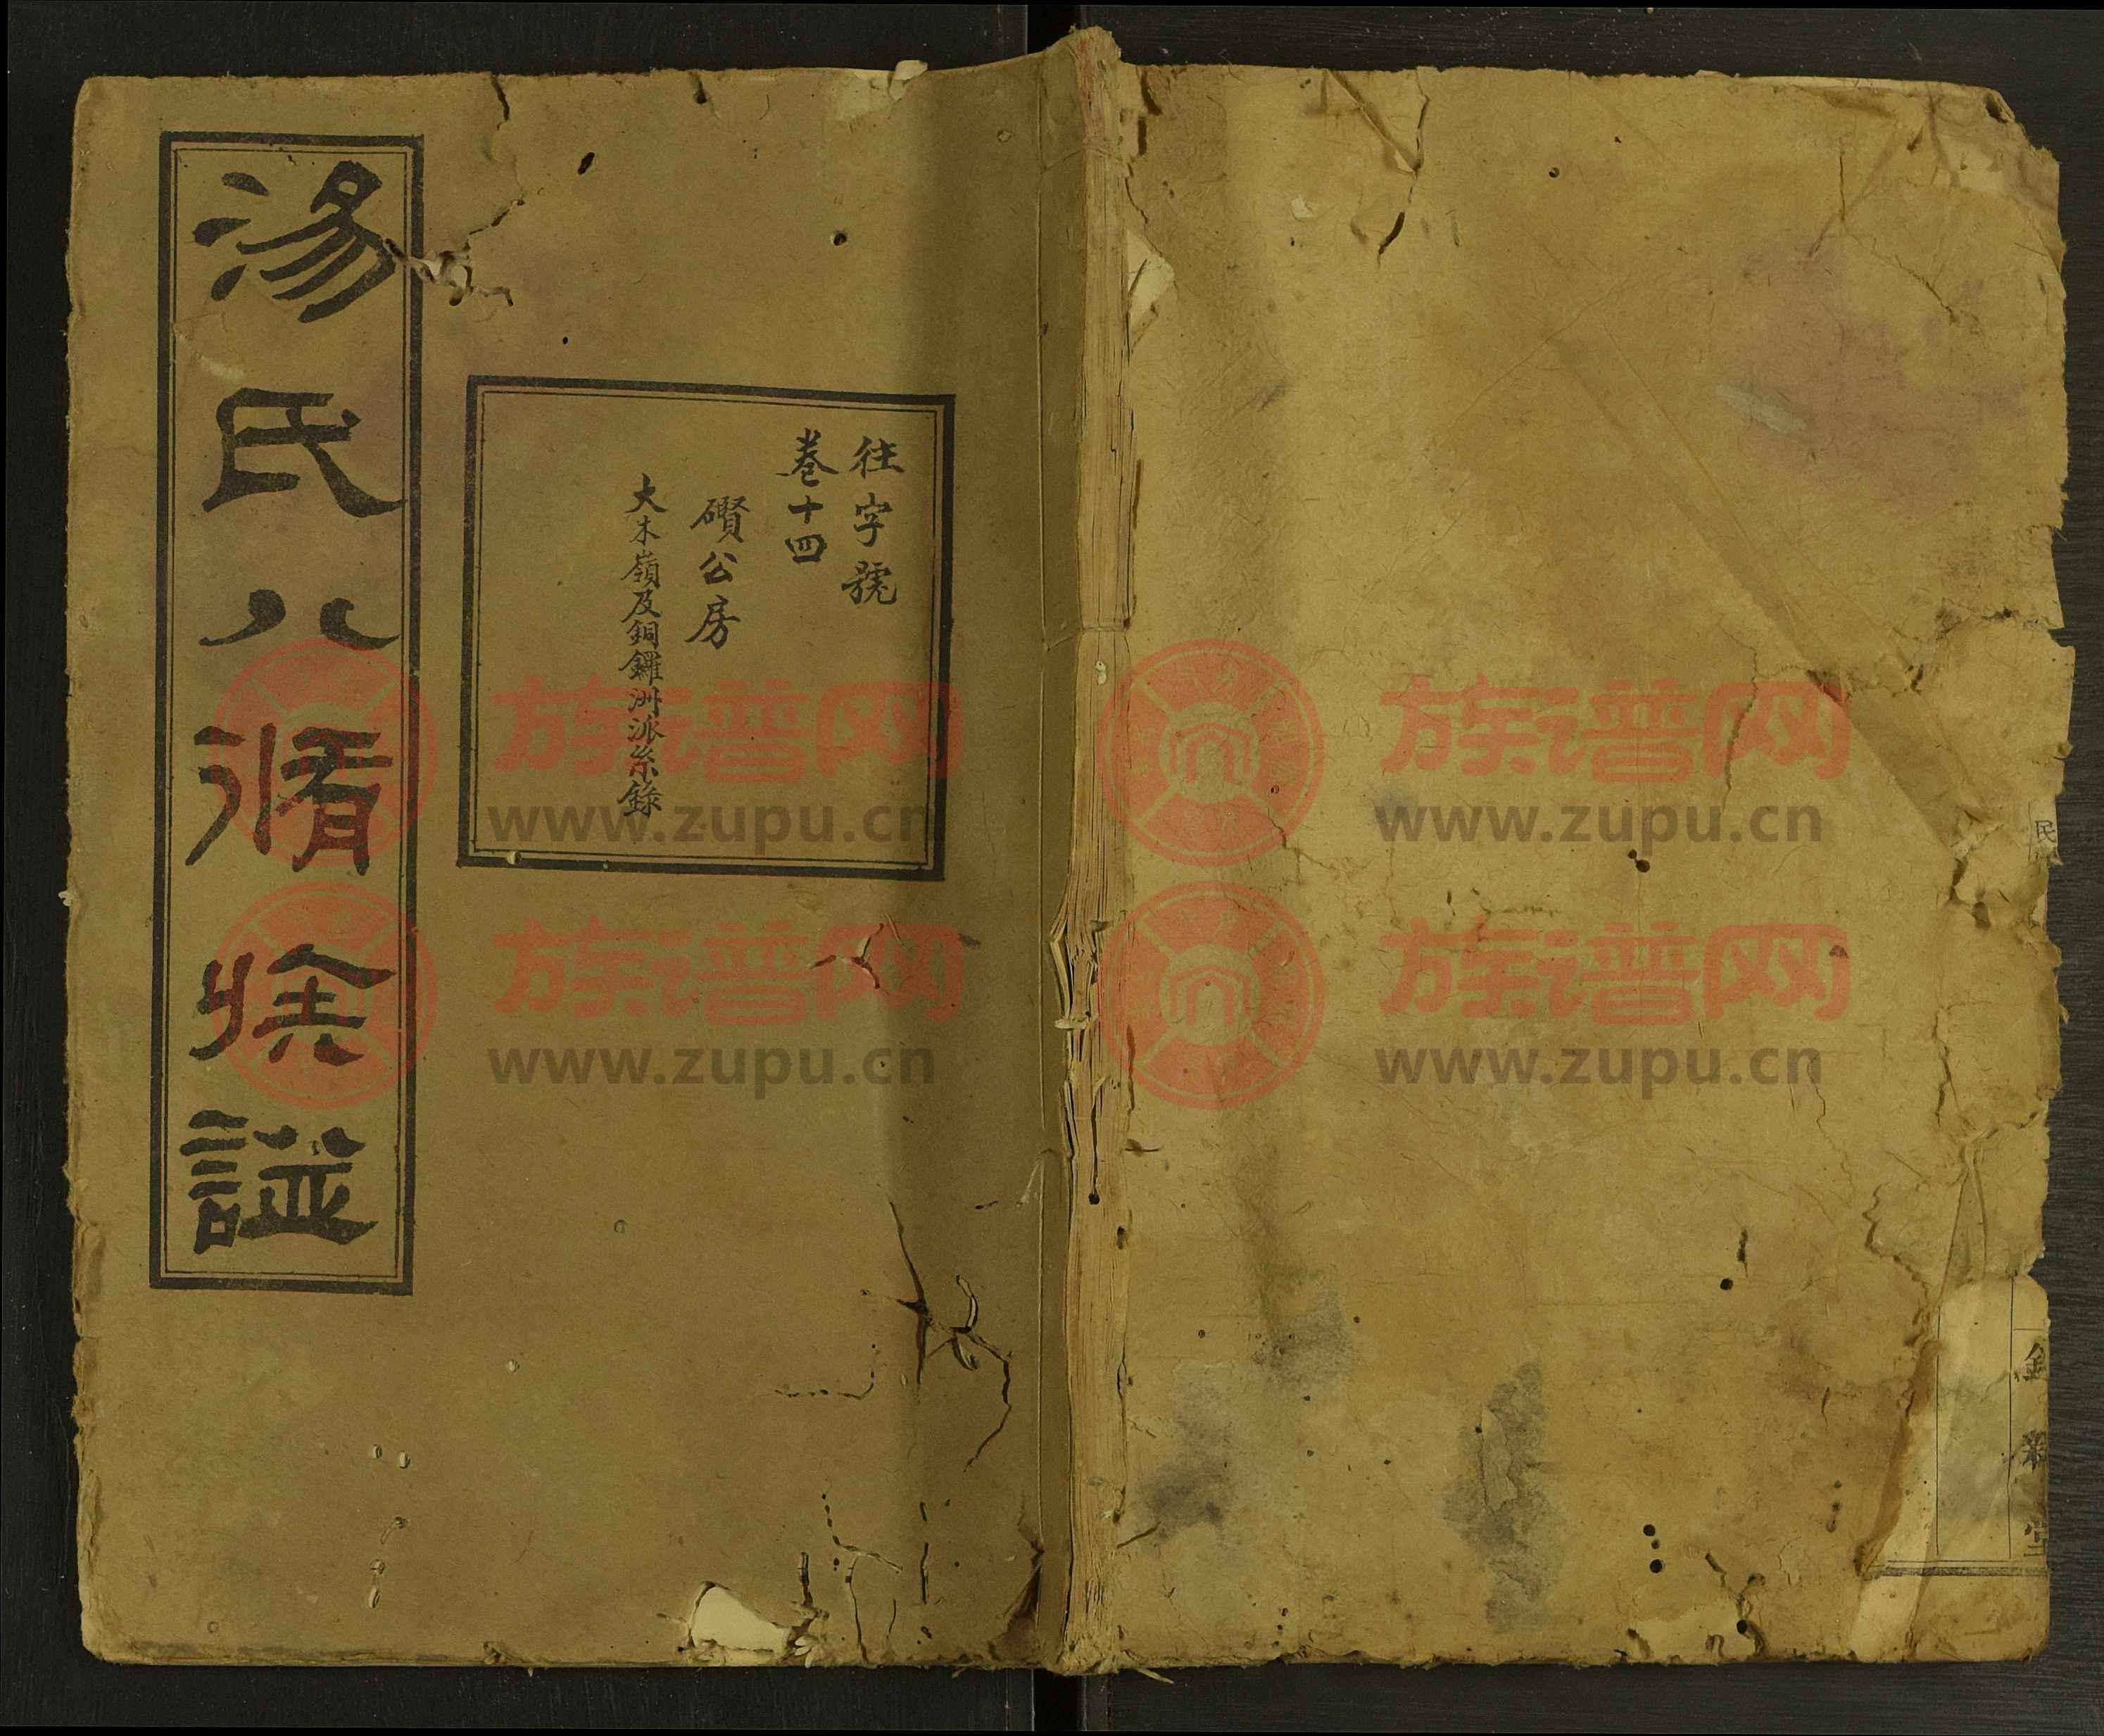 湯氏八脩族譜
往字號
卷十四
礥公房
大木嶺及銅鑼洲派系錄
族谱网
www.zupu.cn
族谱网
www.zupu.cn
族谱网
www.zupu.cn
族谱网
www.zupu.cn
民
堂